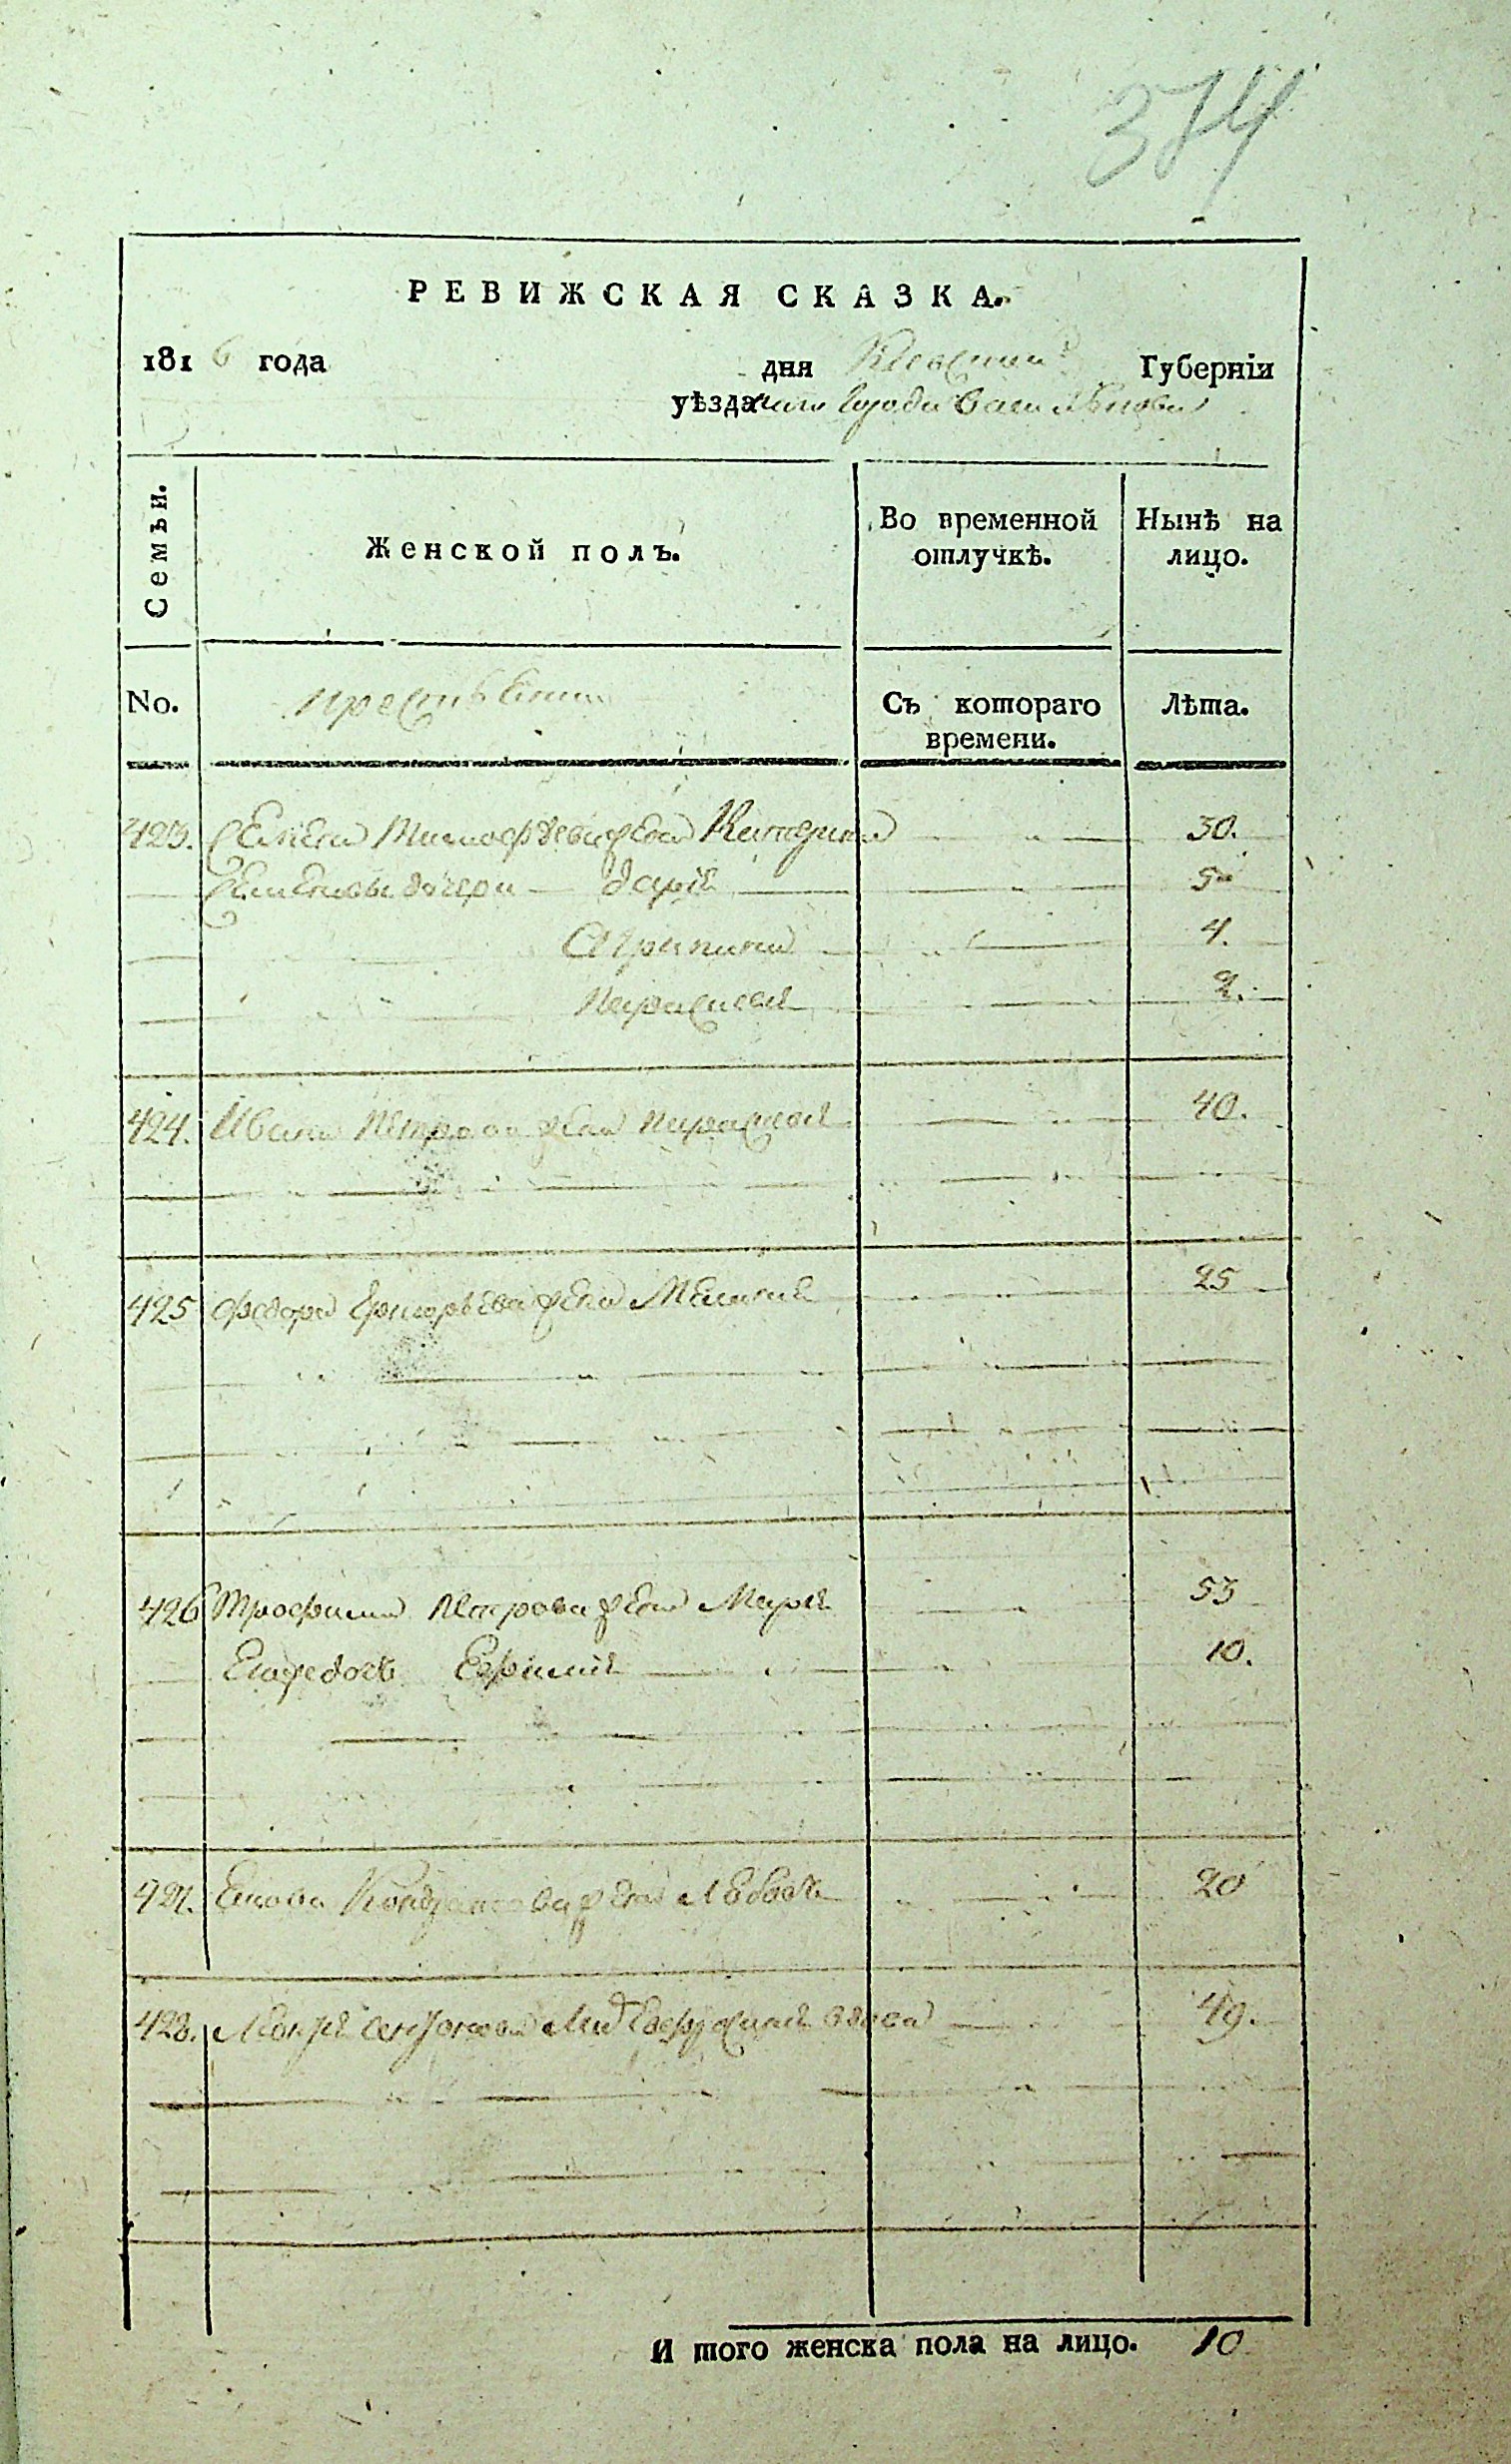 374
РЕВИЖСКАЯ СКАЗКА.
1816 года дня Киевской Губернїи
уѣзда города Василькова
Семьи. Женской полъ. Во временной отлучкѣ. Нынѣ на лицо.
No. Съ котораго времени. Лѣта.
423. Семена Тимофѣева жена Катерина 30.
Семеновы дочери Дарія 5
Агрипина 4.
Параскея 2.
424. Ивана Петрова жена Параскея 40.
425 Федора Григорьева жена Меланія 25
426 Трофима Петрова жена Марія 53
Ефимія 10.
427. жена Любовь 20
428. вдова 49.
И того женска пола на лицо. 10